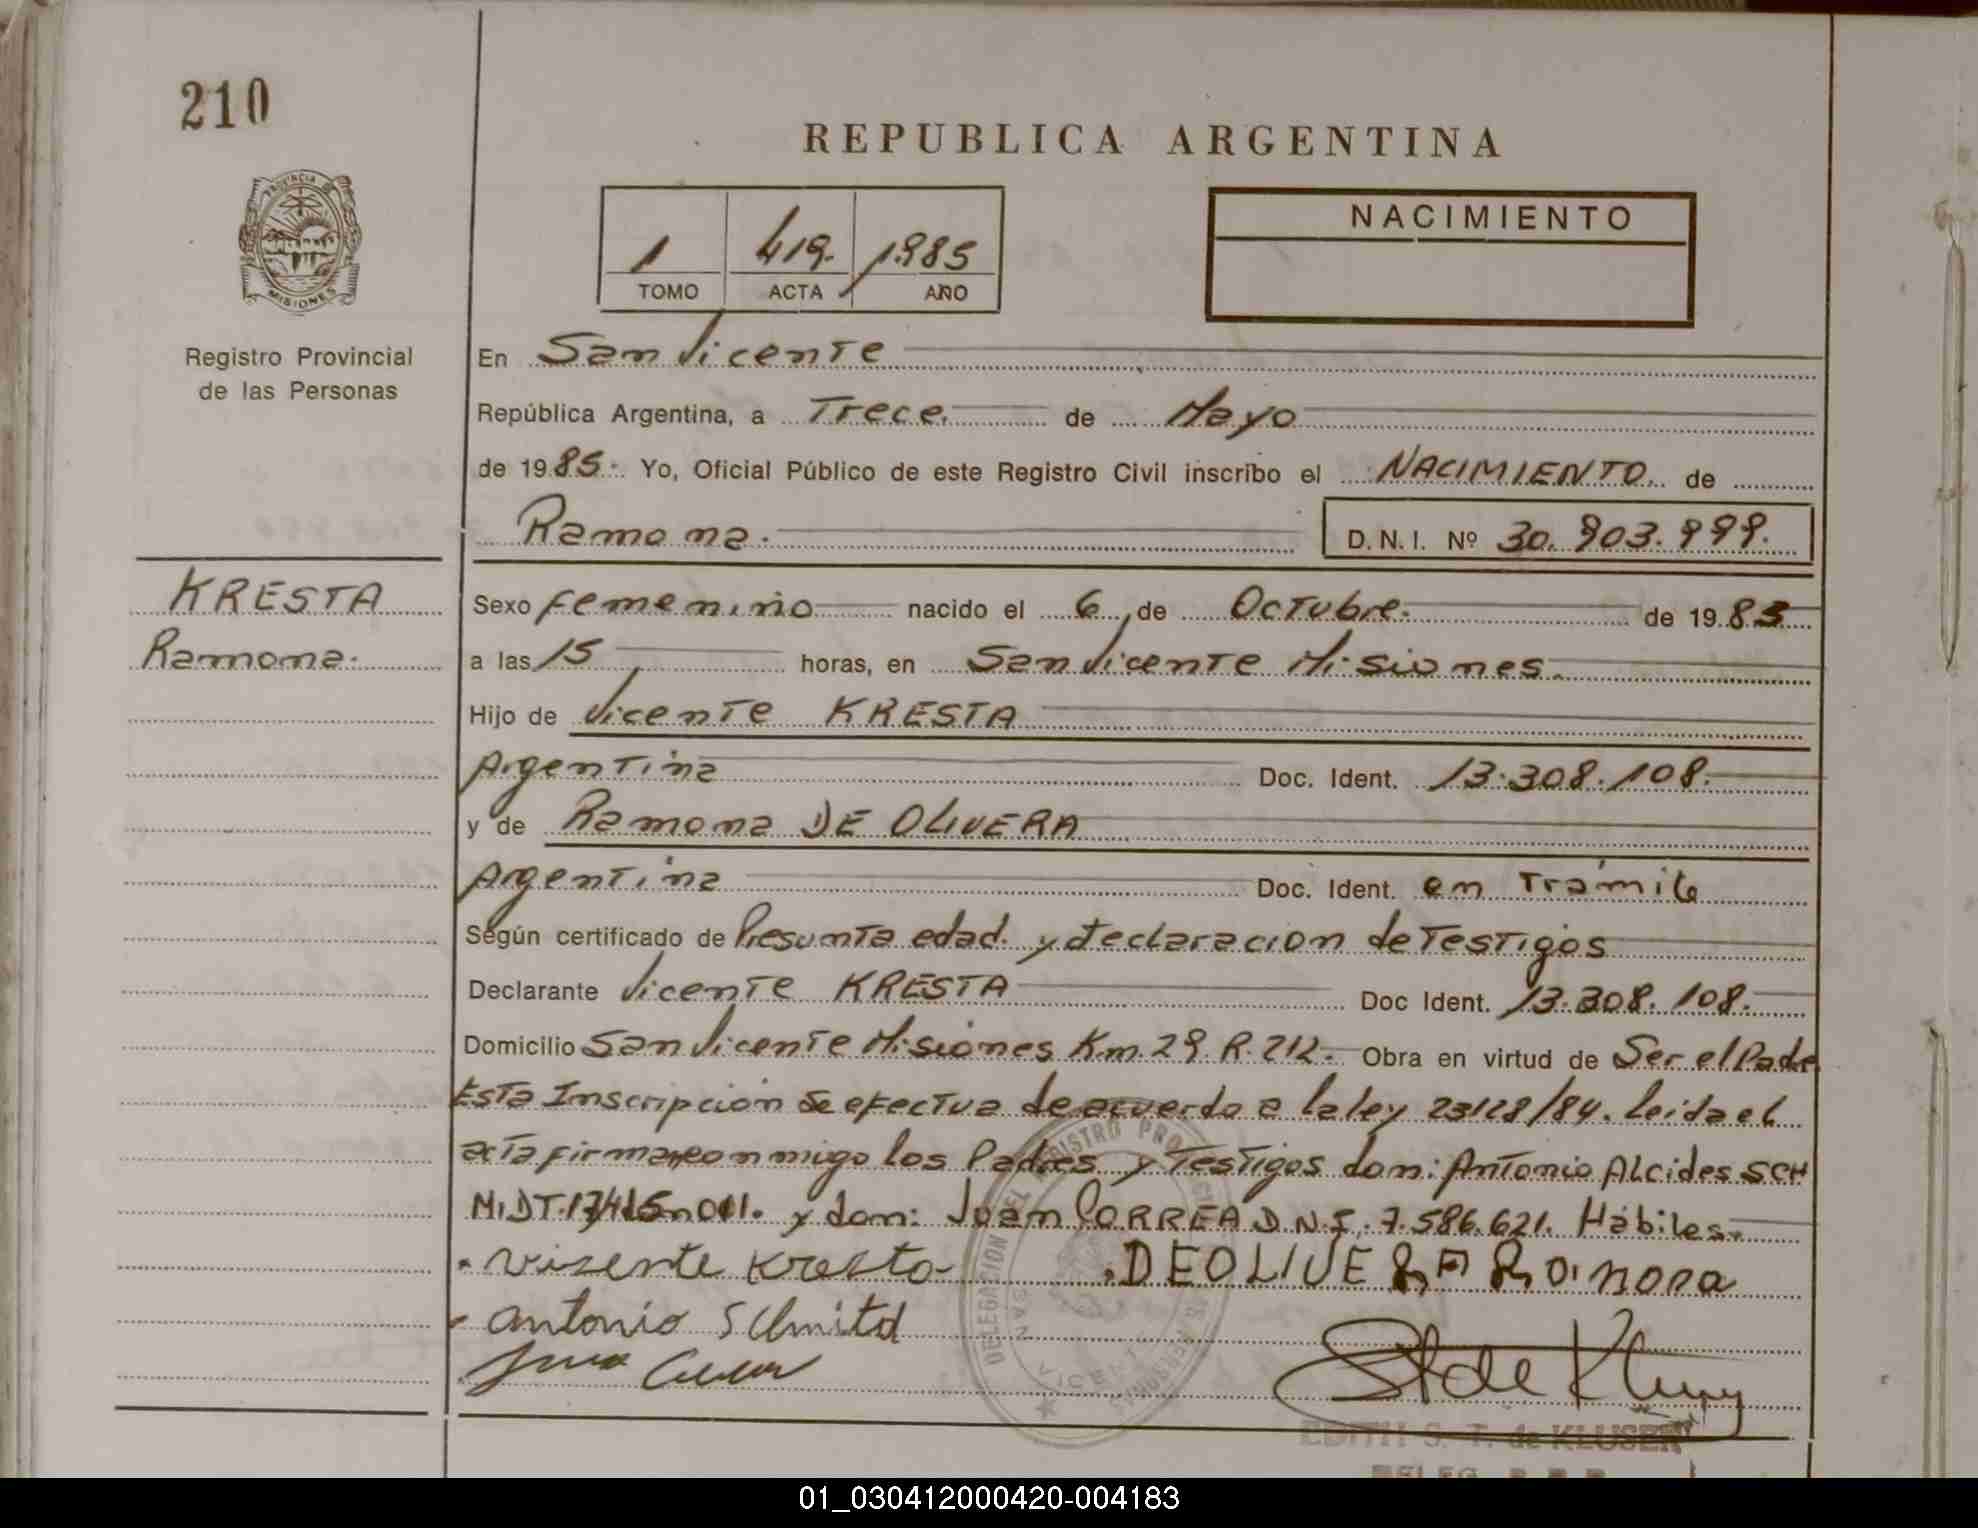 210
REPUBLICA ARGENTINA
PROVINCIA DE
MISIONES
Registro Provincial
de las Personas
1 419. 1.985
TOMO ACTA AÑO
NACIMIENTO
En San Vicente
República Argentina, a Trece. de Mayo
de 1985. Yo, Oficial Público de este Registro Civil inscribo el NACIMIENTO. de
Ramona. D.N.I. Nº 30.903.999.
KRESTA
Ramona.
Sexo femenino nacido el 6 de Octubre. de 1983
a las 15 horas, en San Vicente Misiones.
Hijo de Vicente KRESTA
Argentina Doc. Ident. 13.308.108.
y de Ramona DE OLIVERA
Argentina Doc. Ident. en Trámite
Según certificado de Presunta edad. y declaracion de Testigos
Declarante Vicente KRESTA Doc Ident. 13.308.108.
Domicilio San Vicente Misiones Km.29 R.212. Obra en virtud de Ser el Padre
Esta Inscripción se efectua de acuerdo a la ley 23128/84. Leida el
acta firman conmigo los Padres y Testigos don: Antonio ALcides SCH
M.DT. y don: Juan CORREA D.N.I. 7.586.621. Hábiles.
Visente Kresta DEOLIVERA Ramona
Antonio SChmitd
DELEGACION DEL REGISTRO PROVINCIAL DE LAS PERSONAS
SAN VICENTE
EDITH S. T. de KLUSER
DELEG. R.P.P.
01_030412000420-004183